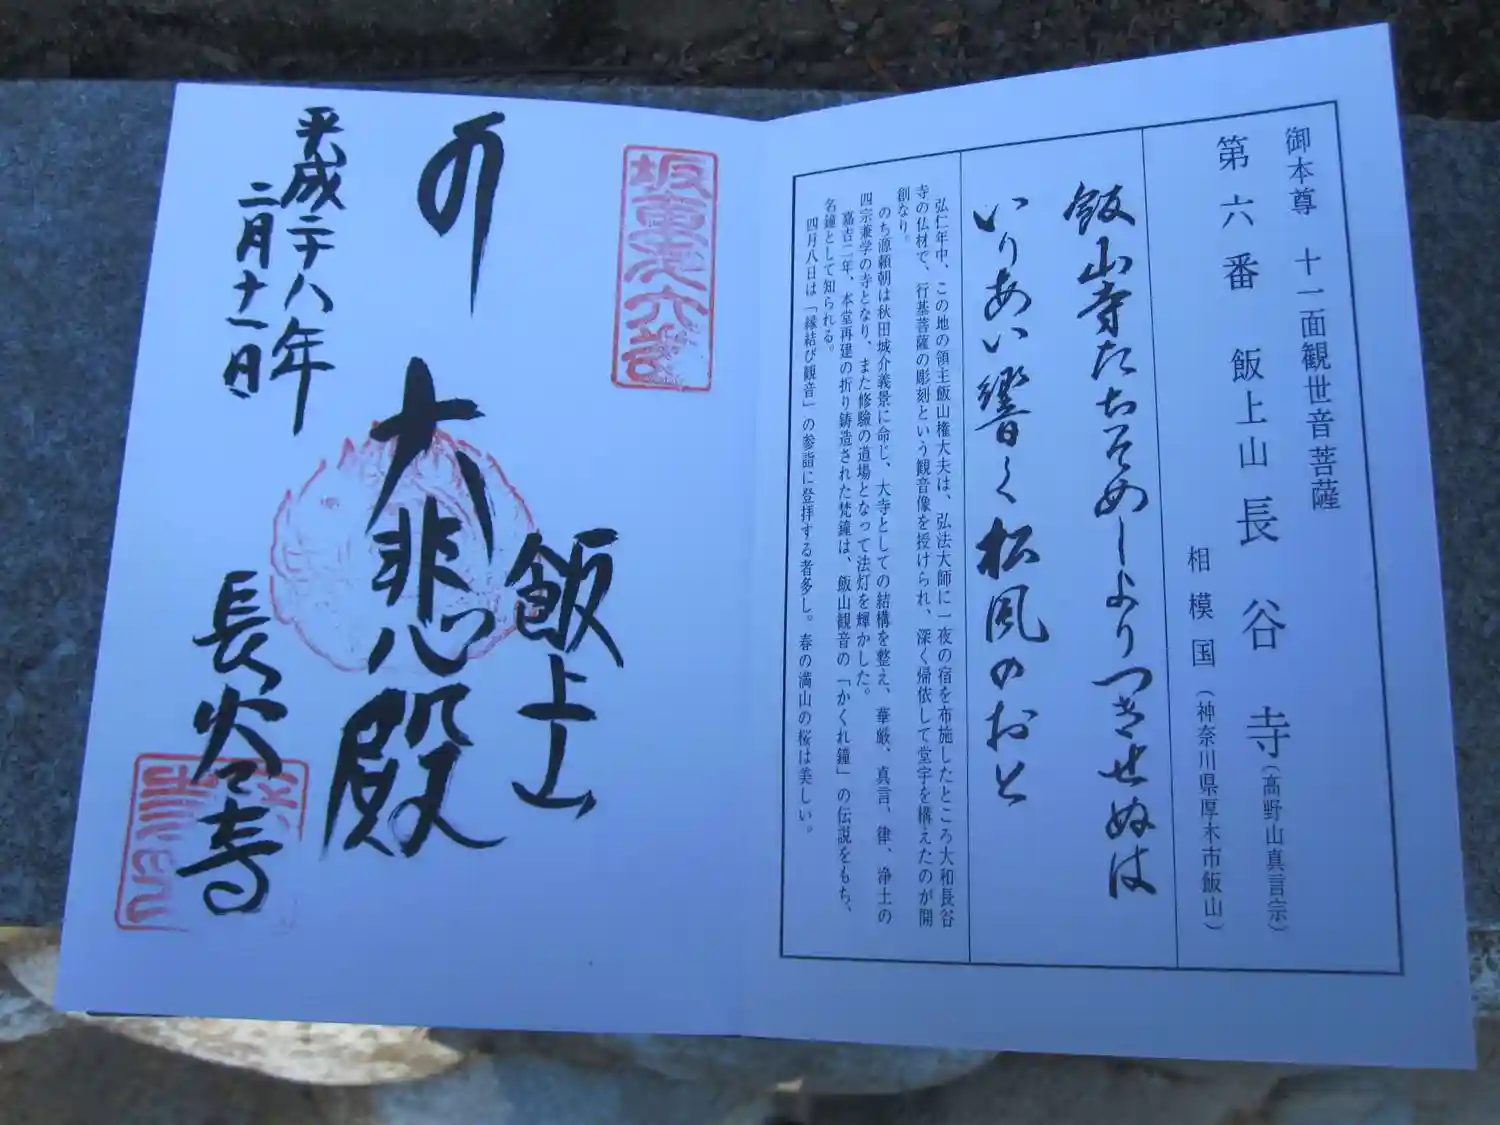 御本尊 十一面観世音菩薩
第六番 飯上山 長谷寺(高野山真言宗)
相模国(神奈川県厚木市飯山)
飯山寺たちそめしよりつきせぬは
いりあい響く松風のおと
弘仁年中、この地の領主飯山権大夫は、弘法大師に一夜の宿を布施したところ大和長谷
寺の仏材で、行基菩薩の彫刻という観音像を授けられ、深く帰依して堂宇を構えたのが開
創なり。
のち源頼朝は秋田城介義景に命じ、大寺としての結構を整え、華厳、真言、律、浄土の
四宗兼学の寺となり、また修験の道場となって法灯を輝かした。
嘉吉二年、本堂再建の折り鋳造された梵鐘は、飯山観音の「かくれ鐘」の伝説をもち、
名鐘として知られる。
四月八日は「縁結び観音」の参詣に登拝する者多し。春の満山の桜は美しい。
坂東六番
飯上山
大悲殿
平成二十八年
二月十一日
長谷寺